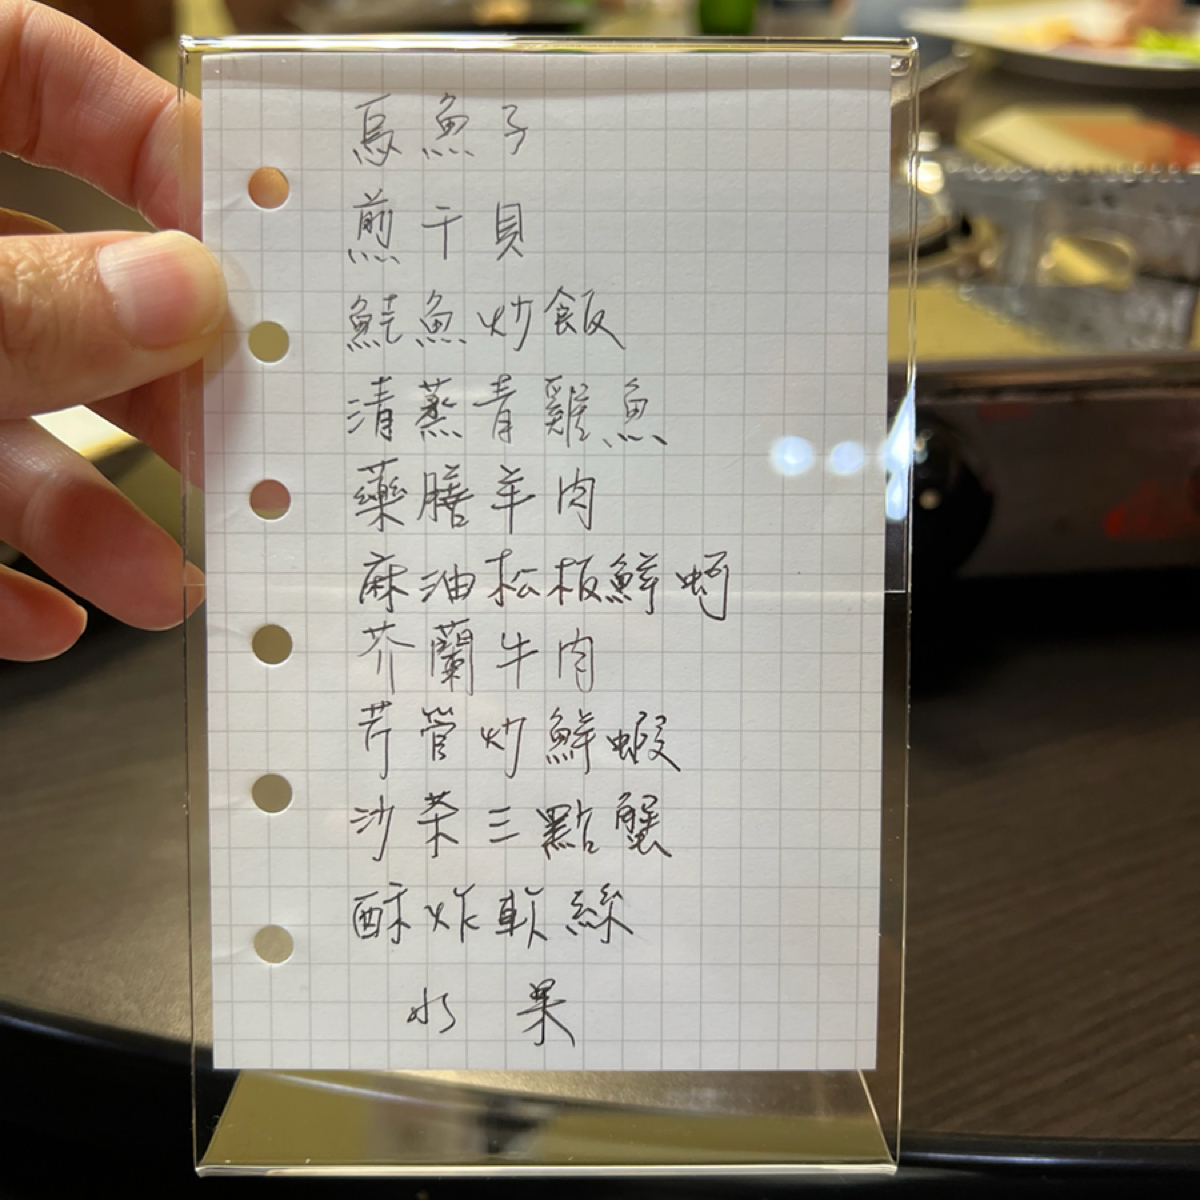 烏魚子
煎干貝
鮭魚炒飯
清蒸青雞魚
藥膳羊肉
麻油松板鮮蚵
芥蘭牛肉
芹管炒鮮蝦
沙茶三點蟹
酥炸軟絲
水果